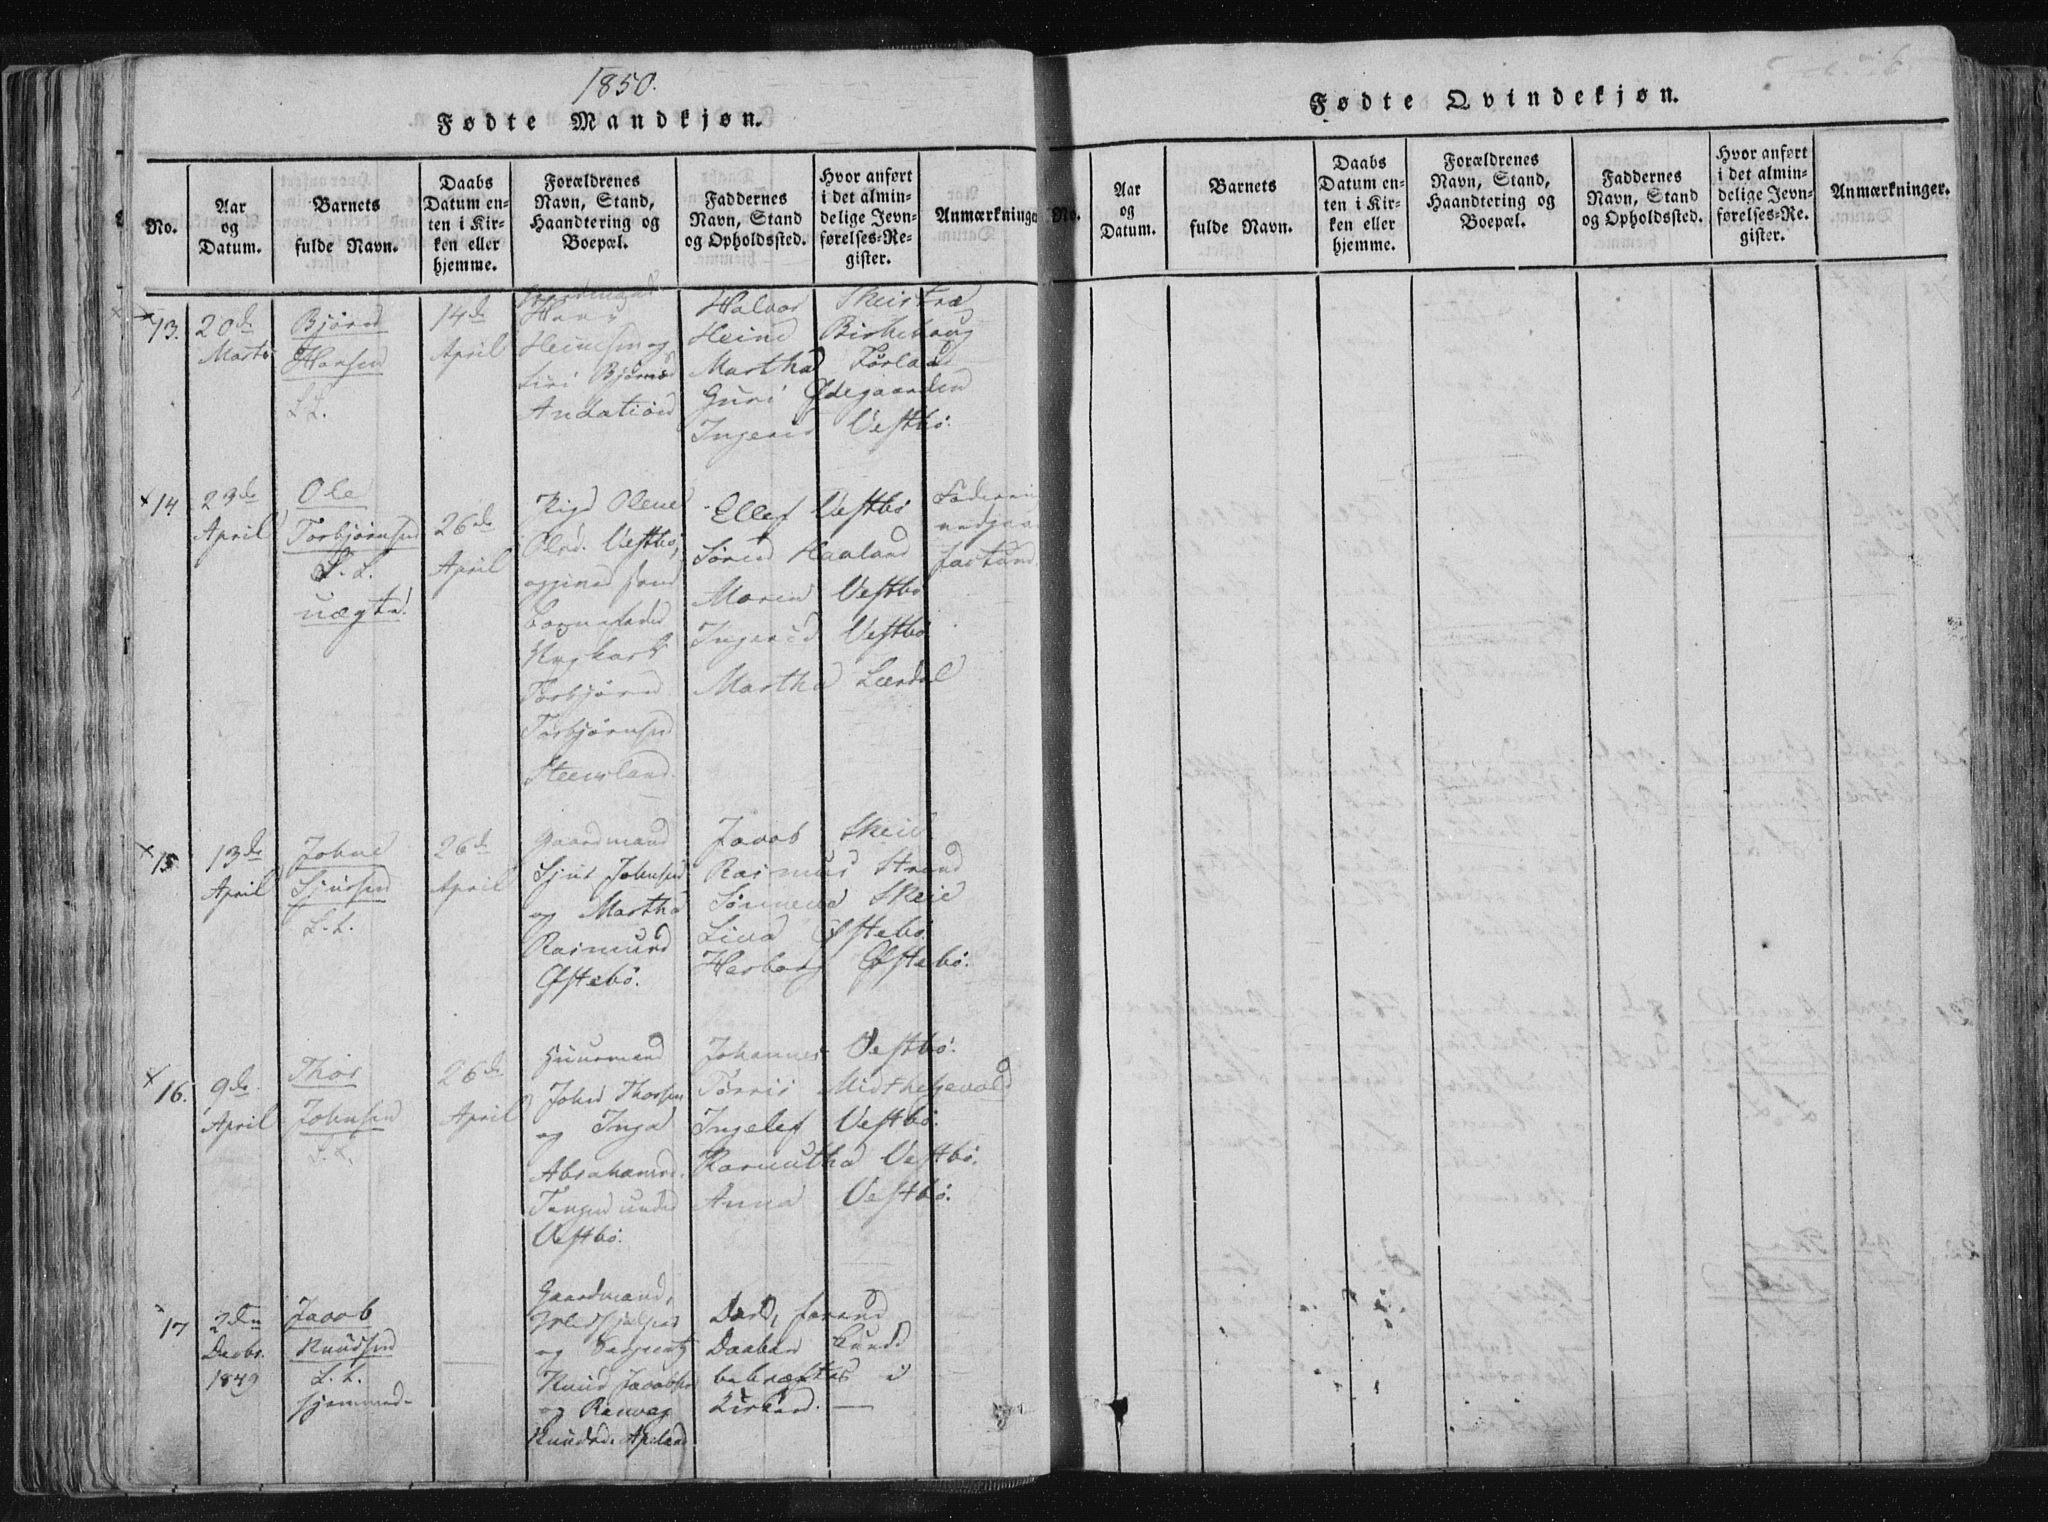 1850.
Fødte Mandkjøn.
No.
Aar og Datum.
Barnets fulde Navn.
Daabs Datum enten i Kirken eller hjemme.
Forældrenes Navn, Stand, Haandtering og Boepæl.
Faddernes Navn, Stand og Opholdssted.
Hvor anført i det almindelige Jevnførelses-Register.
Anmærkninger
13.
20de
Marts
Bjørn
Hansen
L.L.
14de
April
Gaardmand
Hans
Heinesen og
Siri Bjørnsd
Halvor Skeistræ
Heine Birkehoug
Martha Førland
Guri Ødegaarden
Ingerid Vestbø.
14
23de
April
Ole
Torbjørnsen
L.L.
uægte.
26de
April
Pige Olene
Olsd. Vestbø,
Barnefader
Ungkarl
Torbjørn
Torbjørnsen
Steensland.
Ellef Vestbø
Søren Haaland
Maren Vestbø
Ingerid Vestbø
Martha Lærdal
15
13de
April
Johne
Sjursen
L.L.
26de
April
Gaardmand
Sjur Johnsen
og Martha
Rasmusd
Østebø.
Jacob Skeie
Rasmus Strand
Sønneva Skeie
Liva Østebø.
Herborg Østebø.
16.
9de
April
Thor
Johnsen
L.L.
26de
April
Huusmand
John Thorsen
og Inga
Abrahamsd.
Tangen under
Vestbø.
Johannes Vestbø.
Tørris Midthegevold
Ingelef Vestbø.
Vestbø.
Anna Vestbø.
17
2den
Decbr.
1849
Jacob
Knudsen
L.L.
hjemmed.
Gaardmand,
og
Knud Jacobsen
og Ranvey
Knudsd. Apeland
Død, forend
Daaben kunde
bekræftes i
Kirken. —
Fødte Qvindekjøn.
No.
Aar og Datum.
Barnets fulde Navn.
Daabs Datum enten i Kirken eller hjemme.
Forældrenes Navn, Stand, Haandtering og Boepæl.
Faddernes Navn, Stand og Opholdssted.
Hvor anført i det almindelige Jevnførelses-Register.
Anmærkninger.